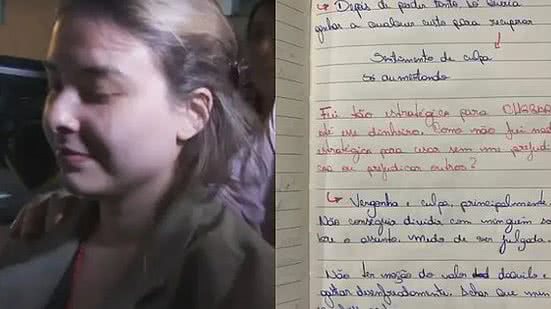 ↳ Depois de perder tanto só queria
ganhar a qualquer custo para recuperar
Sentimento de culpa
só aumentando
Fui tão estratégica para CHEGAR
até esse dinheiro. Como não fui mais
estratégica para usar sem me prejudi
car ou prejudicar outros?
↳ Vergonha e culpa, principalmente.
Não conseguir dividir com ninguém so
bre o assunto. Medo de ser julgada
Não ter noção do valor daquilo e
gastar desenfreadamente. Achar que